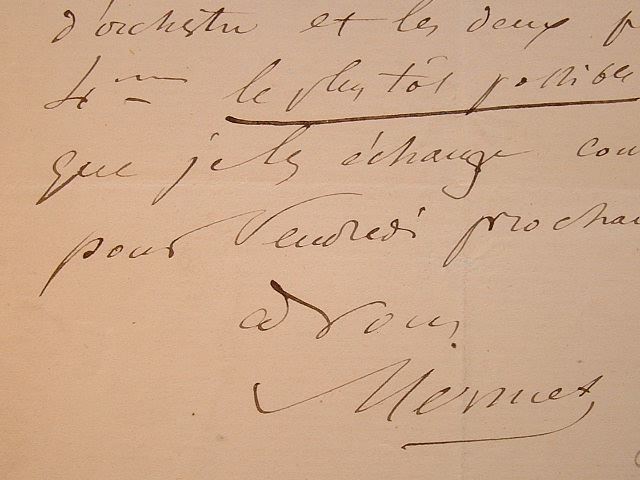 d'orchestre et les deux p
4mes le plus tôt possible
que je les échange con
pour Vendredi prochai
à vous
Mermet